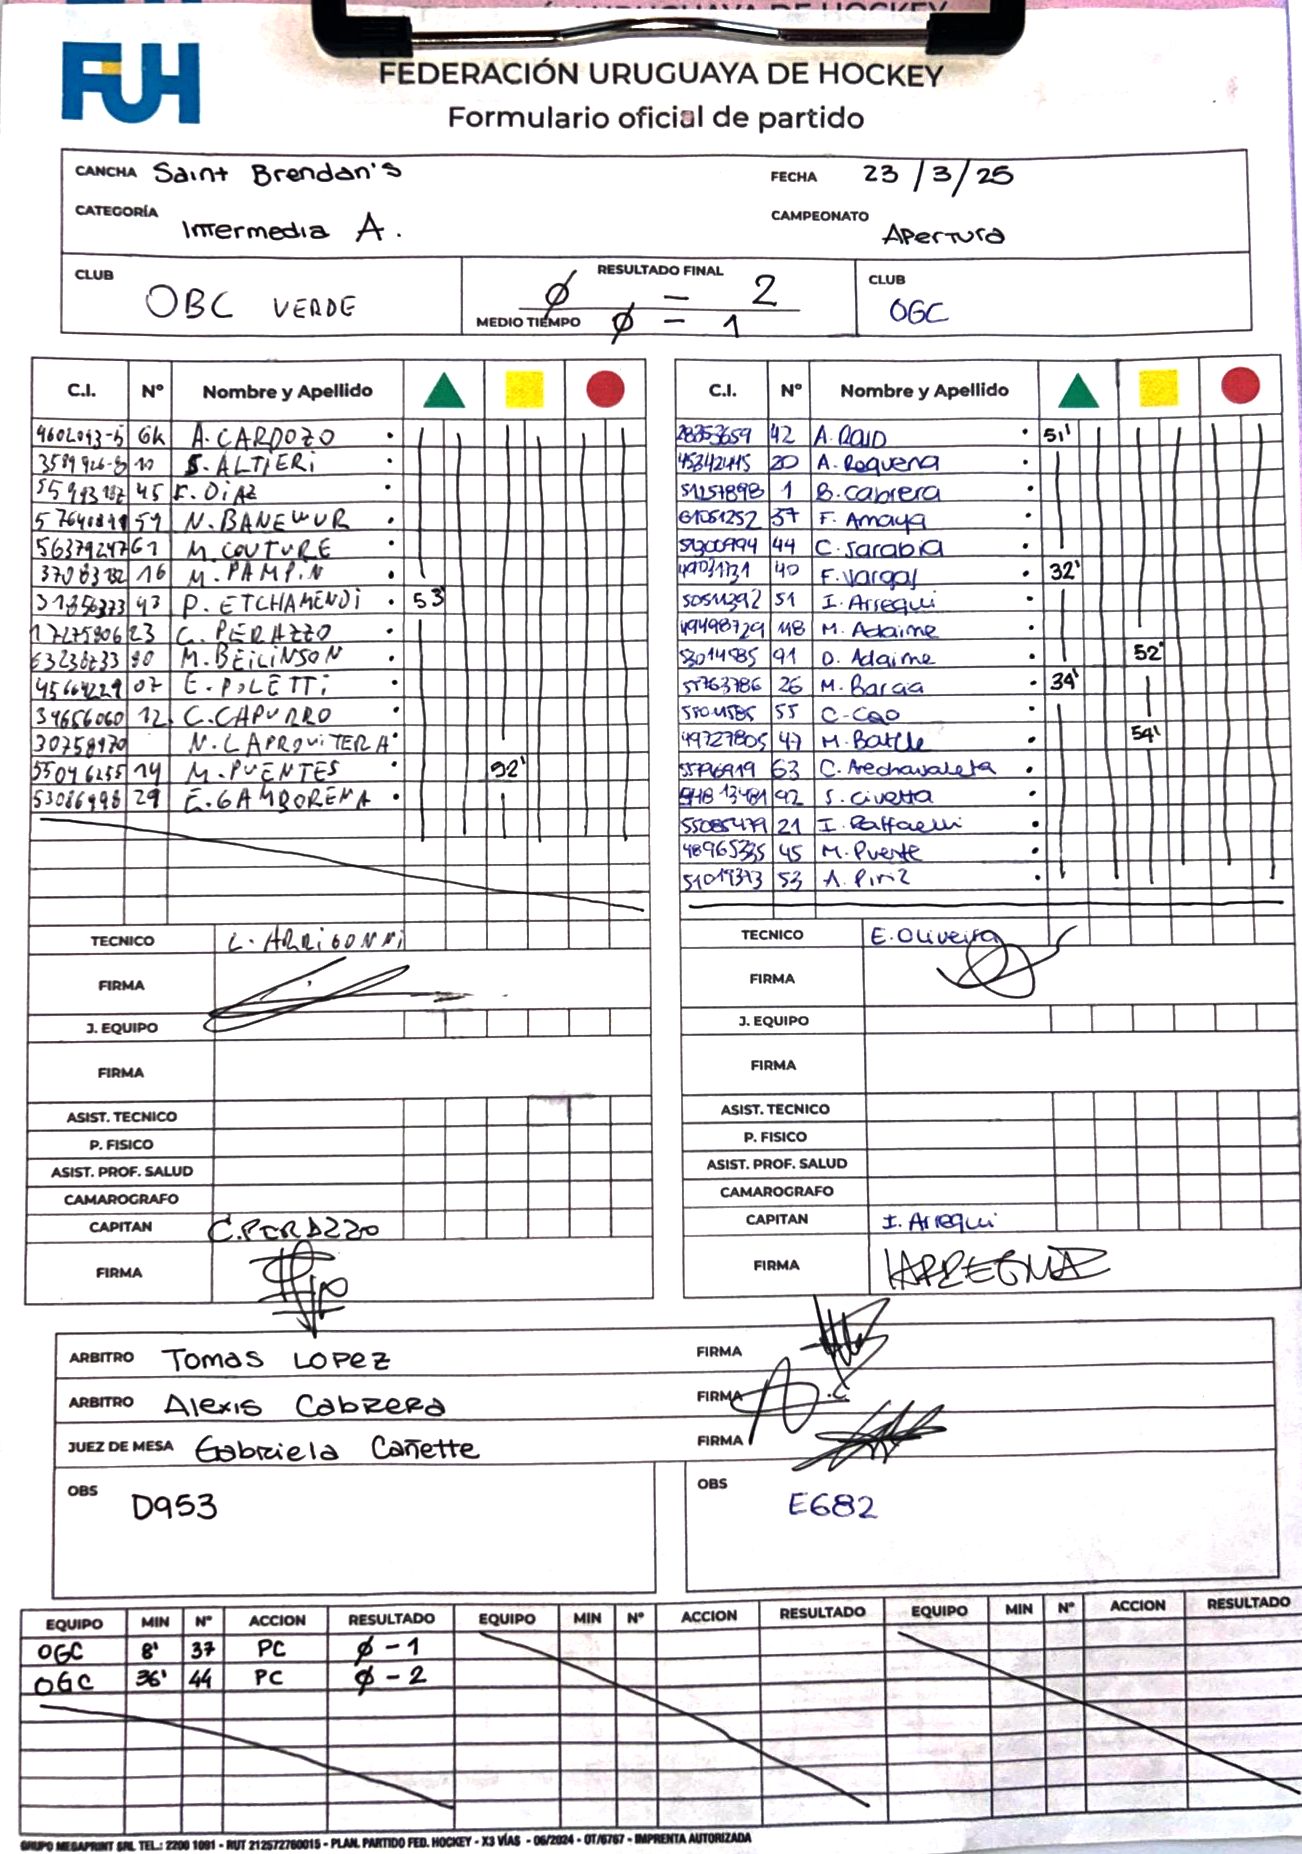 FUH
FEDERACIÓN URUGUAYA DE HOCKEY
Formulario oficial de partido
CANCHA Saint Brendan's FECHA 23/3/25
CATEGORÍA Intermedia A. CAMPEONATO Apertura
CLUB OBC VERDE RESULTADO FINAL ∅ - 2 CLUB OGC
MEDIO TIEMPO ∅ - 1
C.I. Nº Nombre y Apellido
4602093-5 GK A. CARDOZO
S. ALTIERI
45 F. DIAZ
M. COUTURE
16 M. PAMPIN
93 P. ETCHAMENDI 53'
23 C. PERAZZO
M. BEILINSON
07 E. POLETTI
34656060 12 C. CAPURRO
30758970
14 M. PUENTES 52'
53086998 29 E. GAMBORENA
TECNICO L. ARRIGONNI
FIRMA
J. EQUIPO
FIRMA
ASIST. TECNICO
P. FISICO
ASIST. PROF. SALUD
CAMAROGRAFO
CAPITAN C. PERAZZO
FIRMA
C.I. Nº Nombre y Apellido
28353659 42 51'
45342415 20 A. Requena
51257898 1 B. Cabrera
61051252 37 F. Amaya
44 C. Sarabia
40 F. Vargas 32'
51 I. Arregui
49498729 48 M. Adaime
53014585 91 D. Adaime 52'
55763786 26 M. Barga 34'
55 C. Cao
49727805 47 M. Batlle 54'
55796919 63 C. Arechavaleta
92 S. Civetta
55085479 21 I. Raffaelli
48965335 45 M. Puente
51019373 53 A. Piriz
TECNICO E. Oliveira
FIRMA
J. EQUIPO
FIRMA
ASIST. TECNICO
P. FISICO
ASIST. PROF. SALUD
CAMAROGRAFO
CAPITAN I. Arregui
FIRMA
ARBITRO Tomas LOPEZ FIRMA
ARBITRO Alexis Cabrera FIRMA
JUEZ DE MESA Gabriela Cañette FIRMA
OBS D953 OBS E682
EQUIPO MIN Nº ACCION RESULTADO EQUIPO MIN Nº ACCION RESULTADO EQUIPO MIN Nº ACCION RESULTADO
OGC 8' 37 PC ∅ - 1
OGC 36' 44 PC ∅ - 2
GRUPO MEGAPRINT SRL TEL.: 2200 1091 - RUT 212572760015 - PLAN. PARTIDO FED. HOCKEY - X3 VÍAS - 06/2024 - OT/6767 - IMPRENTA AUTORIZADA